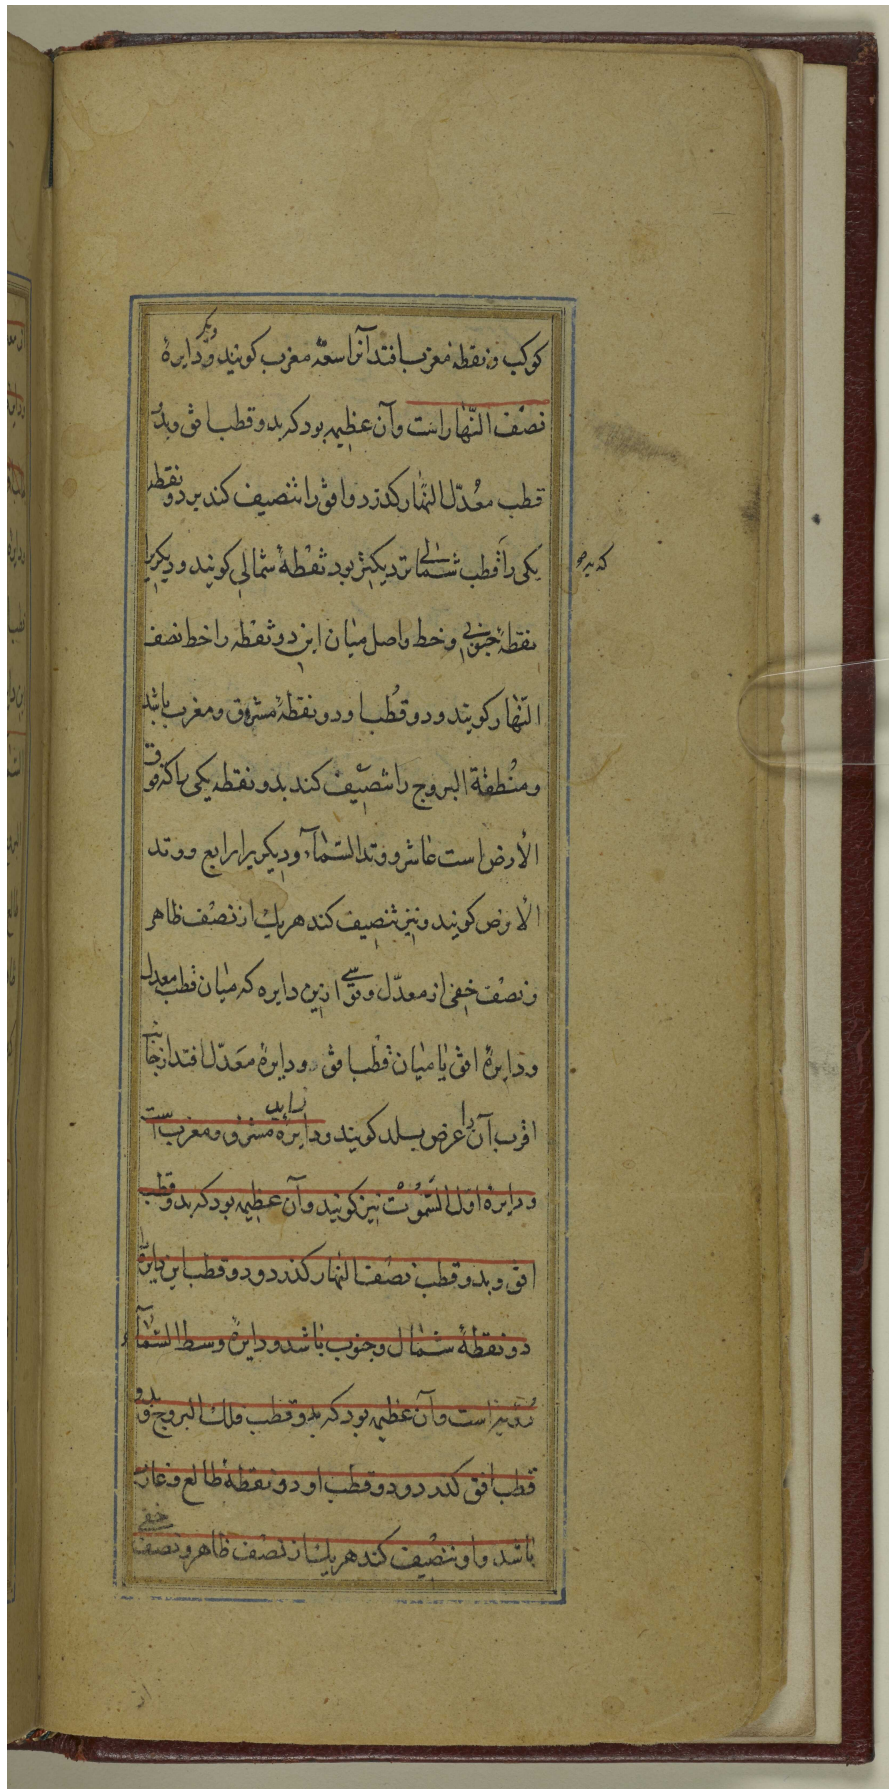 کوکب و نقطه مغرب افتد آنرا سعهٔ مغرب کویند و دیکر دایرهٔ
نصْف النّهٰار است وآن عظیمه بود که بدو قطب افق وبدو
قطب معُدّل النهٰار کذرد و افق را تنصیف کند بر دو نقطه
یکی را قطب شمٰالی نزدیکتر بود نقْطهٔ شمٰالی کویند و دیکریرا
که بر
نقطهٔ جنوبی وخط واصل میٰان این دو نقطه را خط نصف
النّهٰار کویند و دو قُطب او دو نقطهٔ مشرق ومغرب باشد
ومنُطقة البروج را تنصیف کند بدو نقطه یکی را که فوق
الأرض است عٰاشر و وتد السّمٰآء و دیکریرا رابع و وتد
الأرض کویند و نیز تنصیف کند هر یك از نصْف ظاهر
و نصْف خفی از معدّل وقوسی ازین دایره که میٰان قطب معدل
و دایرهٔ افق یٰا میٰان قطْب افق و دایرهٔ معَدّل افتد از جٰانب
اقرب آن را عرض بلد کویند و دایرهٔ مشرق و مغرب است
و دایرهٔ اول السّموُت نیز کویند وآن عظیمه بود که بدو قطب
افق وبدو قطب نصف النهار کذرد و دو قطب این دایرهٔ
دو نقطهٔ شمٰال وجنوب بٰاشد و دایرهٔ وسط السّمٰآء
رُویت است وآن عظیمه بود که بدو قطب فلك البروج وبدو
قطب افق کذرد و دو قطب او دو نقطهٔ طٰالع و غارب
بٰاشد و او تنصیف کند هر یك از نصْف ظاهر و نصف خفی
از